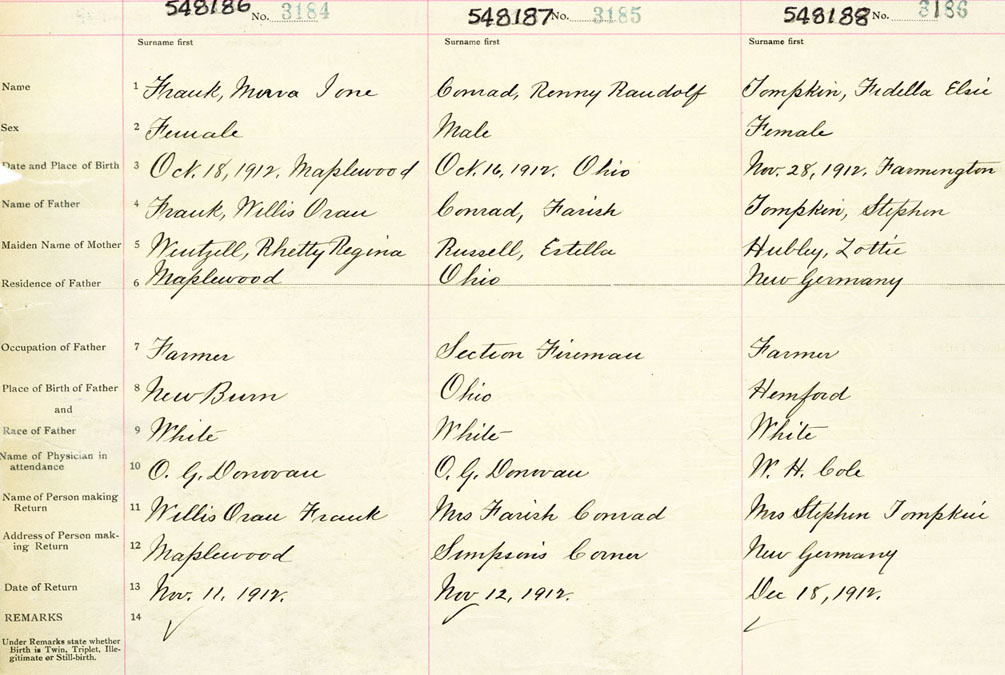 548186 No. 3184 548187 No. 3185 548188 No. 3186
Surname first Surname first Surname first
Name 1 Frank, Merva Ione Conrad, Renny Raudolf Tompkin, Fidella Elsie
Sex 2 Female Male Female
Date and Place of Birth 3 Oct. 18, 1912. Maplewood Oct. 16, 1912. Ohio Nov. 28, 1912. Farmington
Name of Father 4 Frank, Willis Oran Conrad, Farish Tompkin, Stephen
Maiden Name of Mother 5 Wentzell, Rhetty Regina Russell, Estella Hubley, Lottie
Residence of Father 6 Maplewood Ohio New Germany
Occupation of Father 7 Farmer Section Fireman Farmer
Place of Birth of Father 8 New Burn Ohio Hemford
and
Race of Father 9 White White White
Name of Physician in
attendance 10 O. G. Donovan O. G. Donovan W. H. Cole
Name of Person making
Return 11 Willis Oran Frank Mrs Farish Conrad Mrs Stephen Tompkin
Address of Person mak-
ing Return 12 Maplewood Simpson's Corner New Germany
Date of Return 13 Nov. 11, 1912. Nov 12, 1912. Dec 18, 1912.
REMARKS 14
Under Remarks state whether
Birth is Twin, Triplet, Ille-
gitimate or Still-birth.